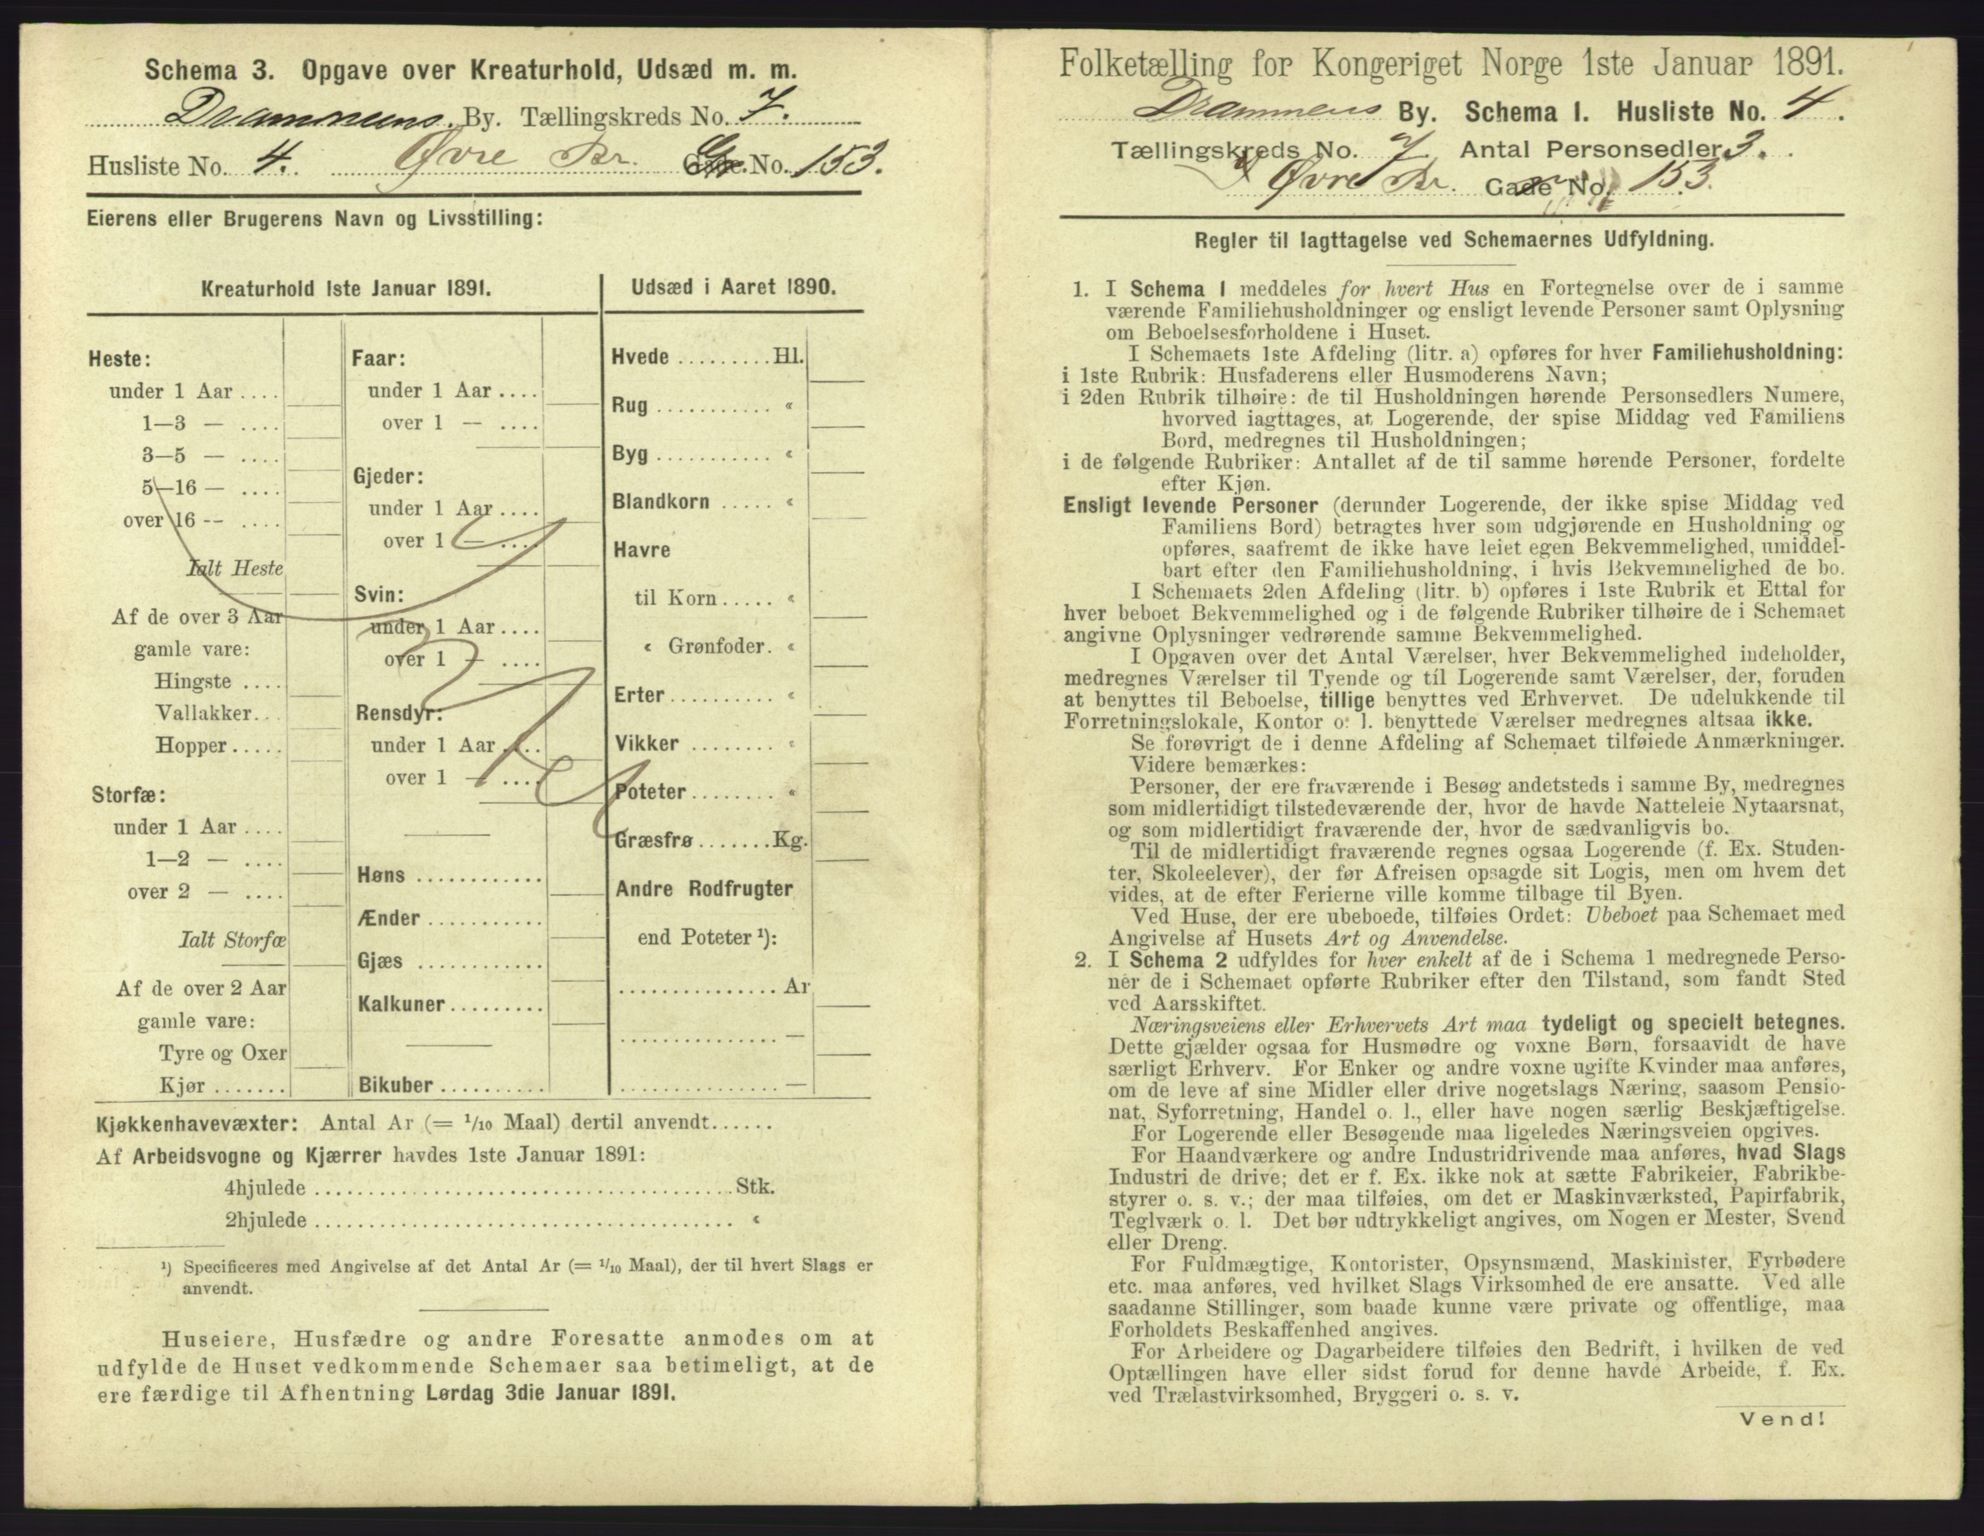 Schema 3. Opgave over Kreaturhold, Udsæd m. m.
Drammens By. Tællingskreds No. 7.
Husliste No. 4. Øvre Br. Gade No. 153.
Eierens eller Brugerens Navn og Livsstilling:
Kreaturhold 1ste Januar 1891.
Heste:
under 1 Aar ....
1—3 — ....
3—5 — ....
5—16 — ....
over 16 -- ....
Ialt Heste
Af de over 3 Aar
gamle vare:
Hingste ....
Vallakker...
Hopper.....
Storfæ:
under 1 Aar ....
1—2 — ....
over 2 — ....
Ialt Storfæ
Af de over 2 Aar
gamle vare:
Tyre og Oxer
Kjør .......
Faar:
under 1 Aar ....
over 1 — ....
Gjeder:
under 1 Aar ....
over 1 — ....
Svin:
under 1 Aar ....
over 1 — ....
Rensdyr:
under 1 Aar ....
over 1 — ....
Høns ............
Ænder ...........
Gjæs ............
Kalkuner.........
Bikuber ..........
Udsæd i Aaret 1890.
Hvede .........Hl.
Rug ........... «
Byg ........... «
Blandkorn ..... «
Havre
til Korn..... «
« Grønfoder. «
Erter.......... «
Vikker ........ «
Poteter........ «
Græsfrø .......Kg.
Andre Rodfrugter
end Poteter ¹):
............... Ar
............... —
............... —
Kjøkkenhavevæxter: Antal Ar (= 1/10 Maal) dertil anvendt......
Af Arbeidsvogne og Kjærrer havdes 1ste Januar 1891:
4hjulede .......................................Stk.
2hjulede ....................................... «
¹) Specificeres med Angivelse af det Antal Ar (= 1/10 Maal), der til hvert Slags er
anvendt.
Huseiere, Husfædre og andre Foresatte anmodes om at
udfylde de Huset vedkommende Schemaer saa betimeligt, at de
ere færdige til Afhentning Lørdag 3die Januar 1891.
Folketælling for Kongeriget Norge 1ste Januar 1891.
Drammens By. Schema I. Husliste No. 4.
Tællingskreds No. 7 Antal Personsedler 3.
Øvre Br. Gade No. 153.
Regler til Iagttagelse ved Schemaernes Udfyldning.
1. I Schema I meddeles for hvert Hus en Fortegnelse over de i samme
værende Familiehusholdninger og ensligt levende Personer samt Oplysning
om Beboelsesforholdene i Huset.
I Schemaets 1ste Afdeling (litr. a) opføres for hver Familiehusholdning:
i 1ste Rubrik: Husfaderens eller Husmoderens Navn;
i 2den Rubrik tilhøire: de til Husholdningen hørende Personsedlers Numere,
hvorved iagttages, at Logerende, der spise Middag ved Familiens
Bord, medregnes til Husholdningen;
i de følgende Rubriker: Antallet af de til samme hørende Personer, fordelte
efter Kjøn.
Ensligt levende Personer (derunder Logerende, der ikke spise Middag ved
Familiens Bord) betragtes hver som udgjørende en Husholdning og
opføres, saafremt de ikke have leiet egen Bekvemmelighed, umiddel-
bart efter den Familiehusholdning, i hvis Bekvemmelighed de bo.
I Schemaets 2den Afdeling (litr. b) opføres i 1ste Rubrik et Ettal for
hver beboet Bekvemmelighed og i de følgende Rubriker tilhøire de i Schemaet
angivne Oplysninger vedrørende samme Bekvemmelighed.
I Opgaven over det Antal Værelser, hver Bekvemmelighed indeholder,
medregnes Værelser til Tyende og til Logerende samt Værelser, der, foruden
at benyttes til Beboelse, tillige benyttes ved Erhvervet. De udelukkende til
Forretningslokale, Kontor o. l. benyttede Værelser medregnes altsaa ikke.
Se forøvrigt de i denne Afdeling af Schemaet tilføiede Anmærkninger.
Videre bemærkes:
Personer, der ere fraværende i Besøg andetsteds i samme By, medregnes
som midlertidigt tilstedeværende der, hvor de havde Natteleie Nytaarsnat,
og som midlertidigt fraværende der, hvor de sædvanligvis bo.
Til de midlertidigt fraværende regnes ogsaa Logerende (f. Ex. Studen-
ter, Skoleelever), der før Afreisen opsagde sit Logis, men om hvem det
vides, at de efter Ferierne ville komme tilbage til Byen.
Ved Huse, der ere ubeboede, tilføies Ordet: Ubeboet paa Schemaet med
Angivelse af Husets Art og Anvendelse.
2. I Schema 2 udfyldes for hver enkelt af de i Schema 1 medregnede Perso-
ner de i Schemaet opførte Rubriker efter den Tilstand, som fandt Sted
ved Aarsskiftet.
Næringsveiens eller Erhvervets Art maa tydeligt og specielt betegnes.
Dette gjælder ogsaa for Husmødre og voxne Børn, forsaavidt de have
særligt Erhverv. For Enker og andre voxne ugifte Kvinder maa anføres,
om de leve af sine Midler eller drive nogetslags Næring, saasom Pensio-
nat, Syforretning, Handel o. l., eller have nogen særlig Beskjæftigelse.
For Logerende eller Besøgende maa ligeledes Næringsveien opgives.
For Haandværkere og andre Industridrivende maa anføres, hvad Slags
Industri de drive; det er f. Ex. ikke nok at sætte Fabrikeier, Fabrikbe-
styrer o. s. v.; der maa tilføies, om det er Maskinværksted, Papirfabrik,
Teglværk o. l. Det bør udtrykkeligt angives, om Nogen er Mester, Svend
eller Dreng.
For Fuldmægtige, Kontorister, Opsynsmænd, Maskinister, Fyrbødere
etc. maa anføres, ved hvilket Slags Virksomhed de ere ansatte. Ved alle
saadanne Stillinger, som baade kunne være private og offentlige, maa
Forholdets Beskaffenhed angives.
For Arbeidere og Dagarbeidere tilføies den Bedrift, i hvilken de ved
Optællingen have eller sidst forud for denne havde Arbeide, f. Ex.
ved Trælastvirksomhed, Bryggeri o. s. v.
Vend!